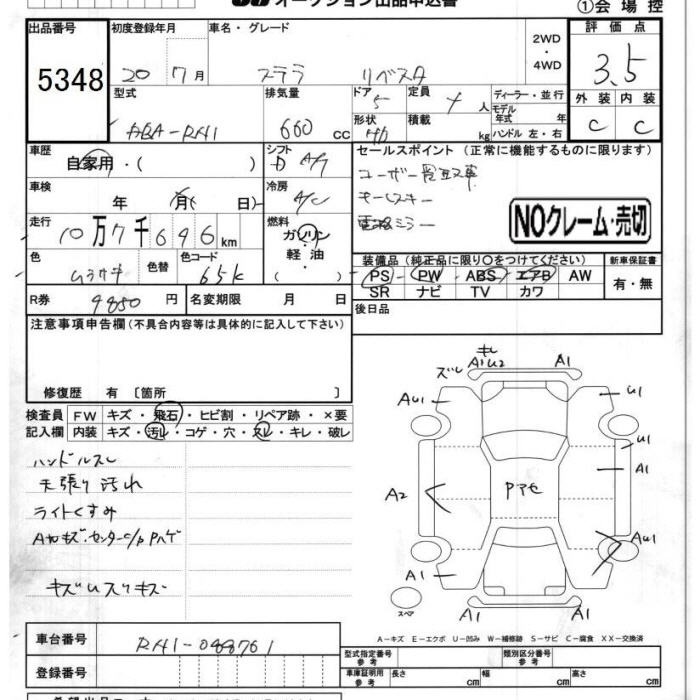 オークション出品申込書
①会場控
出品番号 初度登録年月 車名・グレード 2WD・4WD 評価点
5348 20 7月 ステラ リベスタ 3.5
型式 排気量 ドア 5 定員 4人 ディーラー・並行 外装 内装
ABA-RN1 660 cc 形状 積載 kg モデル年式 年式 ハンドル 左・右 C C
車歴 自家用・( ) シフト セールスポイント(正常に機能するものに限ります)
D A/T ユーザー買取車
車検 年 月( 日) 冷房 A/C キーレスキー
電格ミラー
NOクレーム・売切
走行 10万7千696km 燃料 ガソリン・軽油
装備品(純正品に限り○をつけてください) 新車保証書
色 ムラサキ 色替 色コード 65K PS PW ABS エアB AW 有・無
SR ナビ TV カワ
R券 9850円 名変期限 月 日 後日品
注意事項申告欄(不具合内容等は具体的に記入して下さい)
修復歴 有 〔箇所 〕
検査員 FW キズ・飛石・ヒビ割・リペア跡・×要
記入欄 内装 キズ・汚レ・コゲ・穴・スレ・キレ・破レ
ハンドルスレ
天張り汚れ
ライトくすみ
キズUスリキズ
ズレ キレ
A1U2 A1
AU1 U1
U1
A1
A2
Pアセ
AU1
A1 A1
A1
スペア
A-キズ E-エクボ U-凹み W-補修跡 S-サビ C-腐食 XX-交換済
車台番号 RN1-088761
型式指定番号 参考 類別区分番号 参考
登録番号 車庫証明用 参考 長さ cm 幅 cm 高さ cm